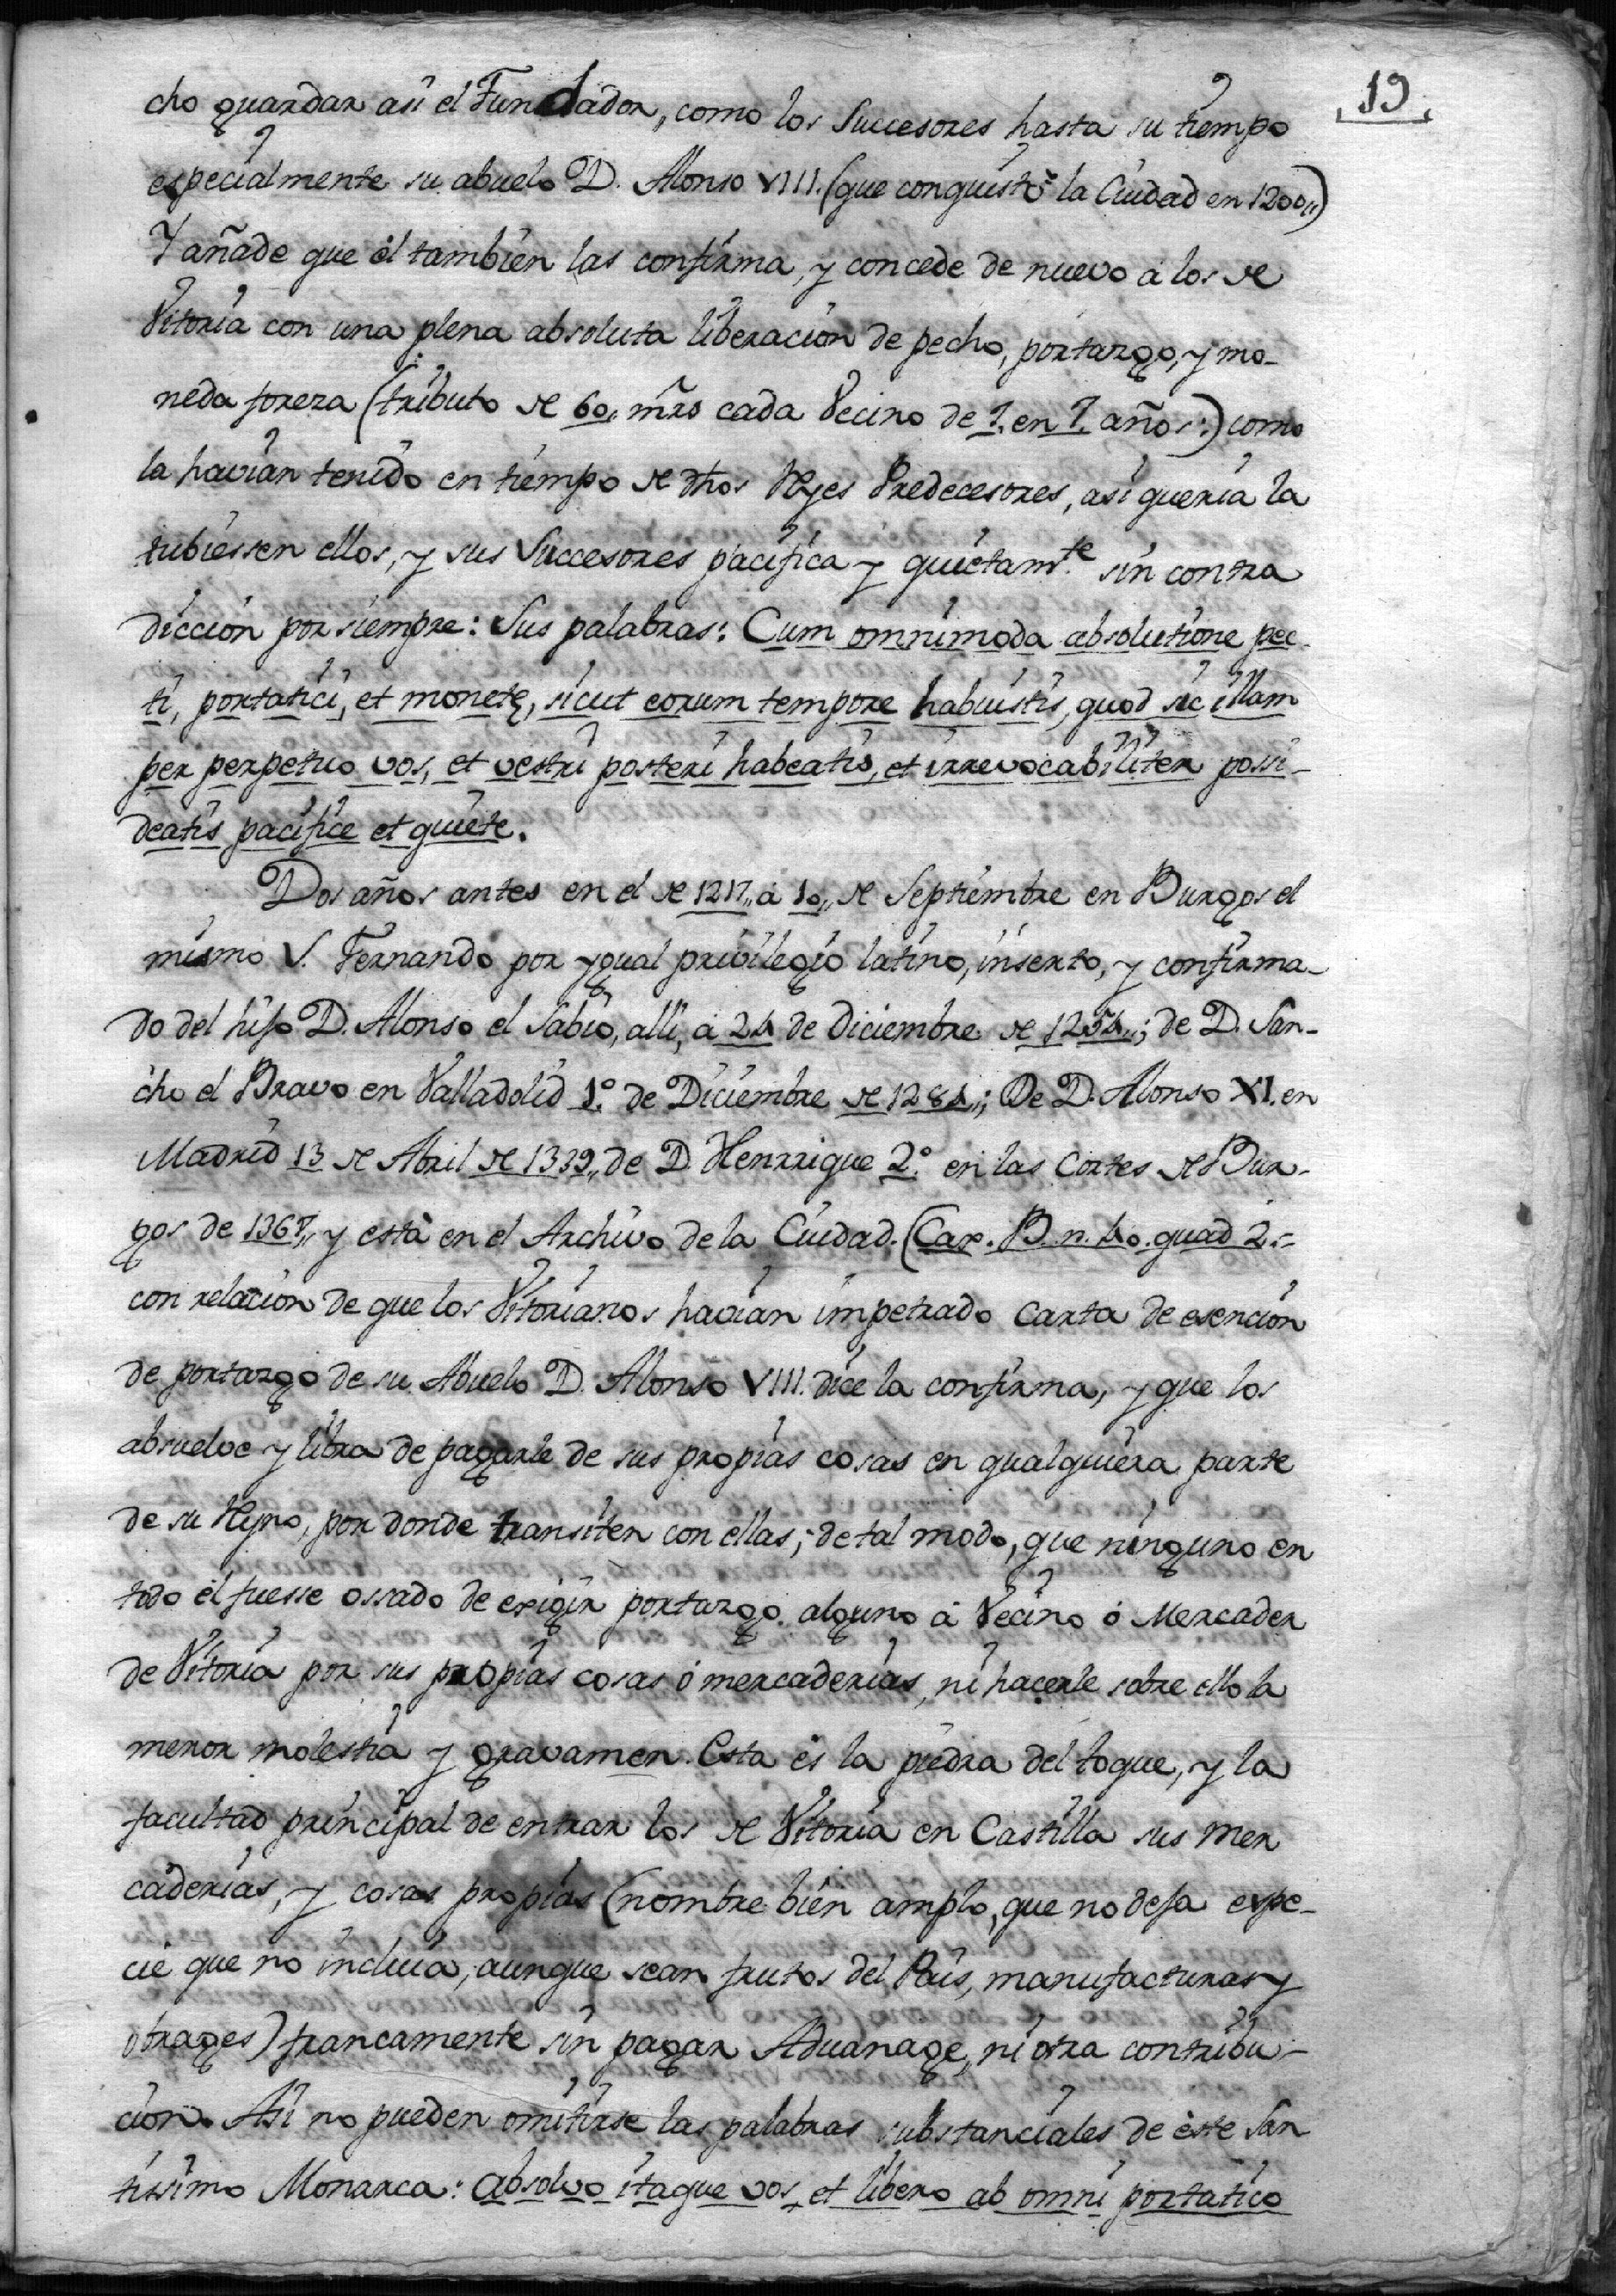 19
cho guardar asi el Fundador, como los Successores hasta su tiempo
especialmente su abuelo D. Alonso VIII. (que conquistò la Ciudad en 1200,,)
Y añade que èl tambien las confirma, y concede de nuevo à los de
Vitoria con una plena absoluta liberacion de pecho, portazgo, y mo-
neda forera (tributo de 60,, mrs cada Vecino de 7, en 7, años:) como
la havian tenido en tiempo de dhos Reyes Predecesores, asi queria la
tubiessen ellos, y sus Successores pacifica y quietamte. sin contra
diccion por siempre: Sus palabras: Cum omnimoda absolutione pec-
ti, portatici, et monetę, sicut eorum tempore habuistis, quod sic illam
per perpetuo vos, et vestri posteri habeatis, et irrevocabiliter possi-
deatis pacifice et quiete.
Dos años antes en el de 1217,, à 10,, de Septiembre en Burgos el
mismo S. Fernando por ygual privilegio latino, inserto, y confirma-
do del hijo D. Alonso el Sabio, alli, à 24 de Diciembre de 1254,,; de D. San-
cho el Bravo en Valladolid 1º. de Diciembre de 1284,,; De D. Alonso XI. en
Madrid 13 de Abril de 1339,, de D. Henrrique 2º. en las Cortes de Bur-
gos de 1367,, y està en el Archivo de la Ciudad. (Cax. B. n. 40. quad 2.=
con relacion de que los Vitorianos havian impetrado carta de esencion
de portazgo de su Abuelo D. Alonso VIII. dice la confirma, y que los
absuelve y libra de pagarle de sus propias cosas en qualquiera parte
de su Reyno, por donde transiten con ellas; de tal modo, que ninguno en
todo èl fuesse ossado de exigir portazgo alguno à Vecino ò Mercader
de Vitoria por sus propias cosas ò mercaderias, ni hacerle sobre ello la
menor molestia y gravamen. Esta ès la piedra del toque, y la
facultad principal de entrar los de Vitoria en Castilla sus mer
caderias, y cosas propias (nombre bien amplo, que no deja espe-
cie que no incluia, aunque sean frutos del Pais, manufacturas y
obrages) francamente sin pagar Aduanage, ni otra contribu-
cion. Asi no pueden omitirse las palabras substanciales de èste San
tisimo Monarca: Absolvo itaque vos, et libero ab omni portatico